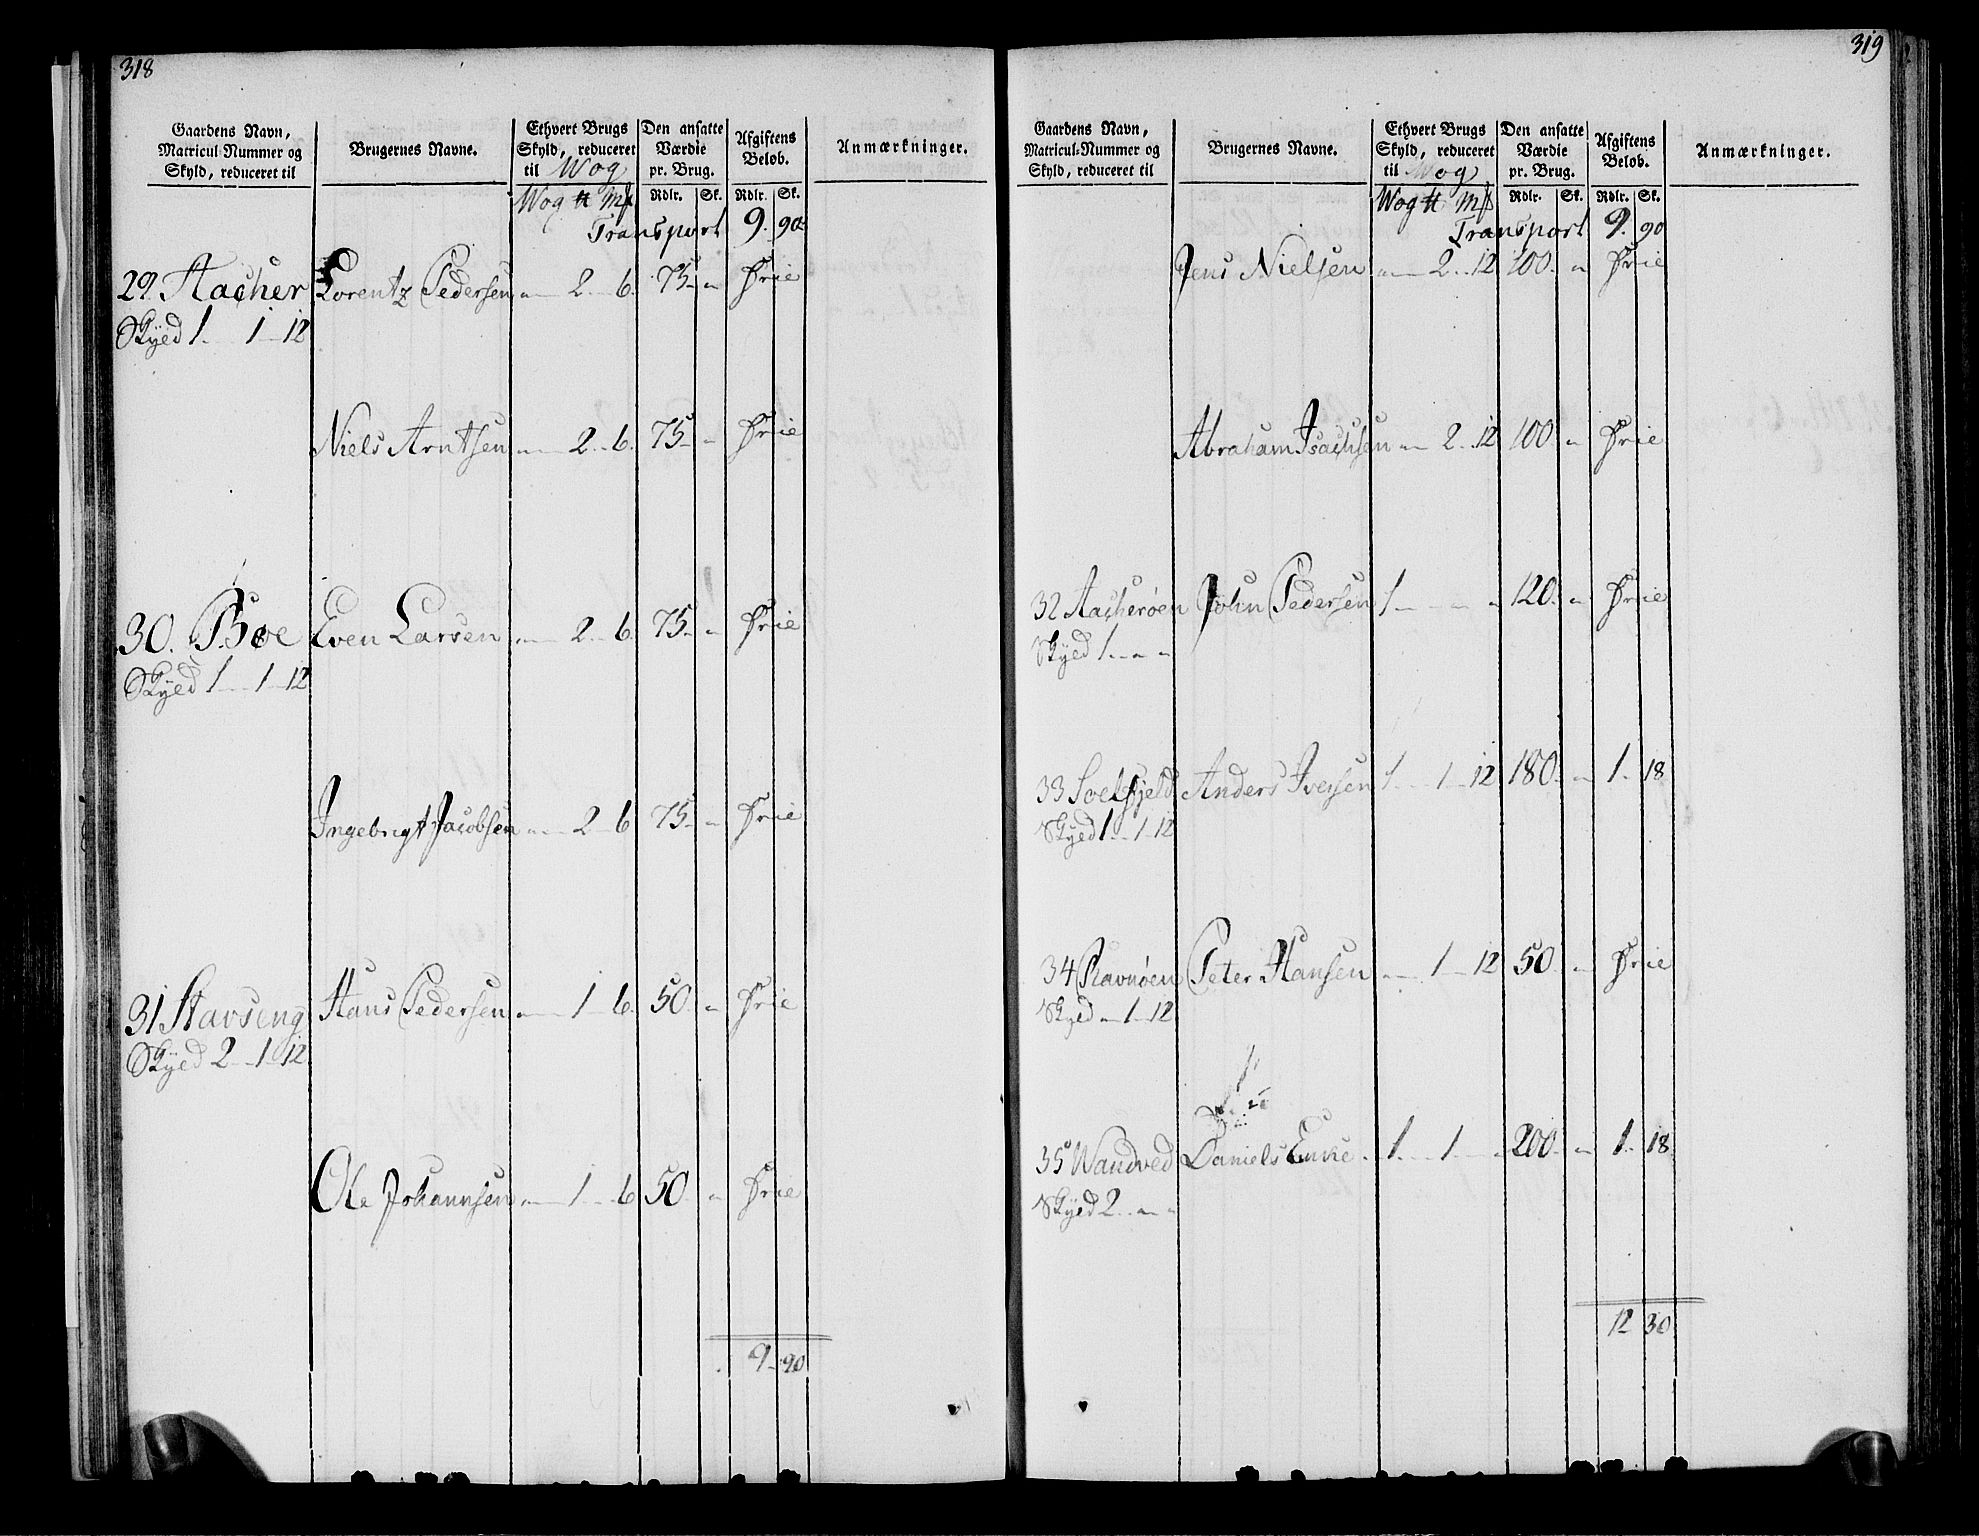 318
Gaardens Navn, Matricul-Nummer og Skyld, reduceret til | Brugernes Navne. | Ethvert Brugs Skyld, reduceret til Wog | Den ansatte Værdie pr. Brug. | Afgiftens Belob. | Anmærkninger.
Wog ℔ Mk | Rdlr. Sk. | Rdlr. Sk.
Transport 9. 90
29. Aacher Lorentz Pedersen „ 2 6. 75 „ Frie
Skyed 1. 1 12
Niels Arntsen „ 2 6. 75 „ Frie
30. Bøe Even Larsen „ 2 6. 75 „ Frie
Skyed 1 1 12
Ingebrigt Jacobsen „ 2 6 75 „ Frie
31 Stavseng Hans Pedersen „ 1 6. 50. „ Frie
Skyed 2 1 12
Ole Johannsen „ 1 6 50 „ Frie
9 90
319
Gaardens Navn, Matricul-Nummer og Skyld, reduceret til | Brugernes Navne. | Ethvert Brugs Skyld, reduceret til Wog | Den ansatte Værdie pr. Brug. | Afgiftens Belob. | Anmærkninger.
Wog ℔ Mk | Rdlr. Sk. | Rdlr. Sk.
Transport 9. 90
Jens Nielsen „ 2 12 100. „ Frie
Abraham Isachsen „ 2 12 100 „ Frie
32 Aacherøen John Pedersen 1 „ „ 120. „ Frie
Skyed 1 „ „
33 Soelfjeld Anders Iversen 1 1 12 180. „ 1. 18
Skyed 1 1 12
34 Ravnøen Peter Hansen „ 1 12 50 „ Frie
Skyed „ 1 12
35 Wandved Daniels Enke 1 1 „ 200. „ 1. 18
Skyed 2 „ „
12 30